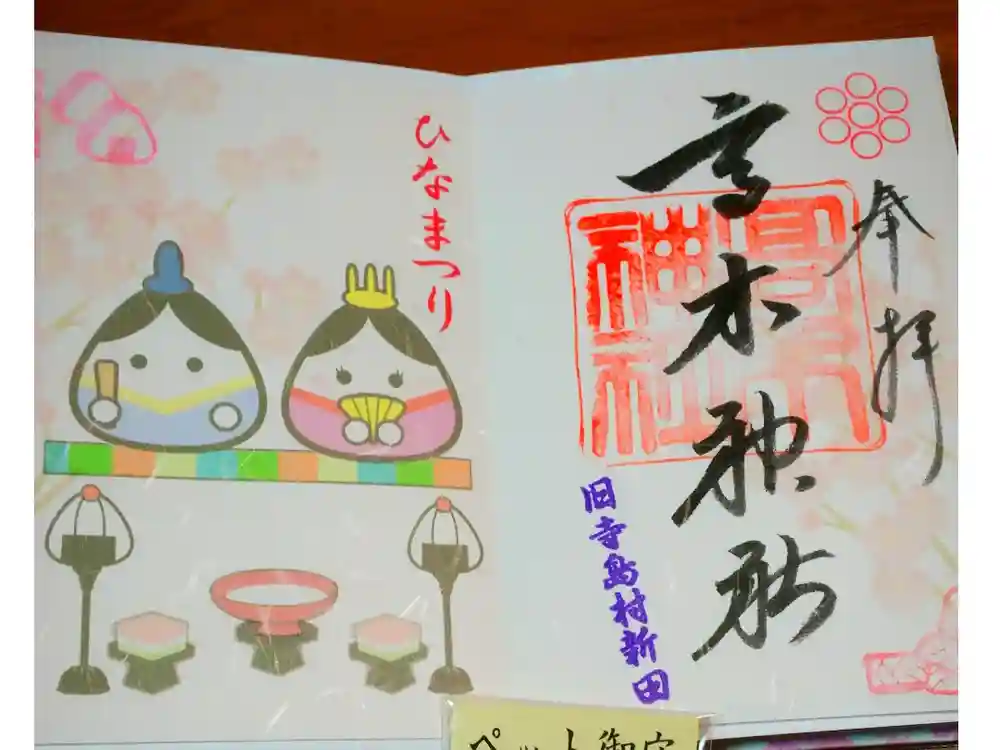 奉拝
高木神社
高木
神社
旧寺島村新田
ひなまつり
ペット御守